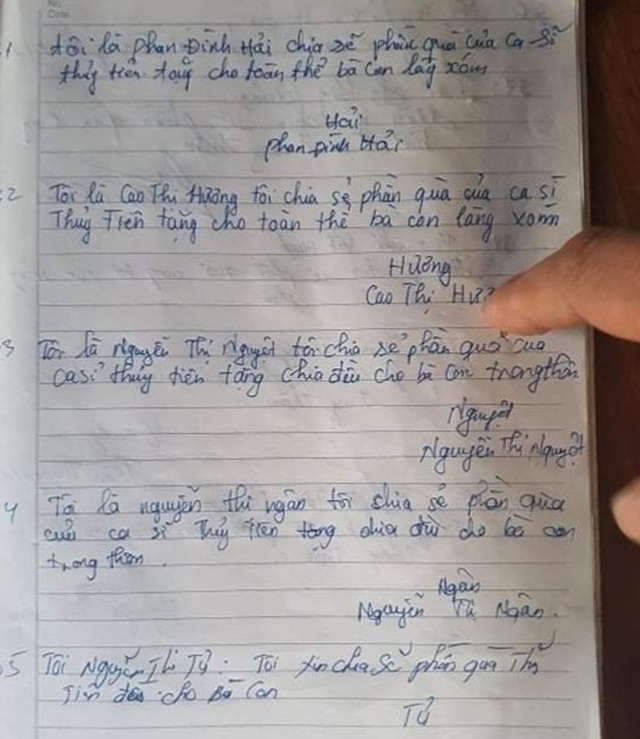 No.
Date
1 tôi là phan Đình Hải chia sẽ phần quà của ca sĩ
thủy tiên tặng cho toàn thể bà con làg xóm
Hải
phan Đình Hải
2 Tôi là Cao Thị Hương tôi chia sẻ phần quà của ca sĩ
Thuỷ Tiên tặng cho toàn thể bà con làng xóm
Hương
Cao Thị
3 Tôi là Nguyễn Thị Nguyệt tôi chia sẻ phần quà của
ca sĩ thủy tiên tặng chia đều cho bà con trong thôn
Nguyệt
Nguyễn Thị Nguyệt
4 Tôi là nguyễn thi ngân tôi chia sẻ phần qùa
của ca sĩ Thủy tiên tặng chia đều cho bà con
trong thôn.
Ngân
Nguyễn Thị Ngân.
5 Tôi Nguyễn Thị Tứ: Tôi xin chia Sẽ phần quà Thủy
Tiên đều cho Bà Con
Tứ